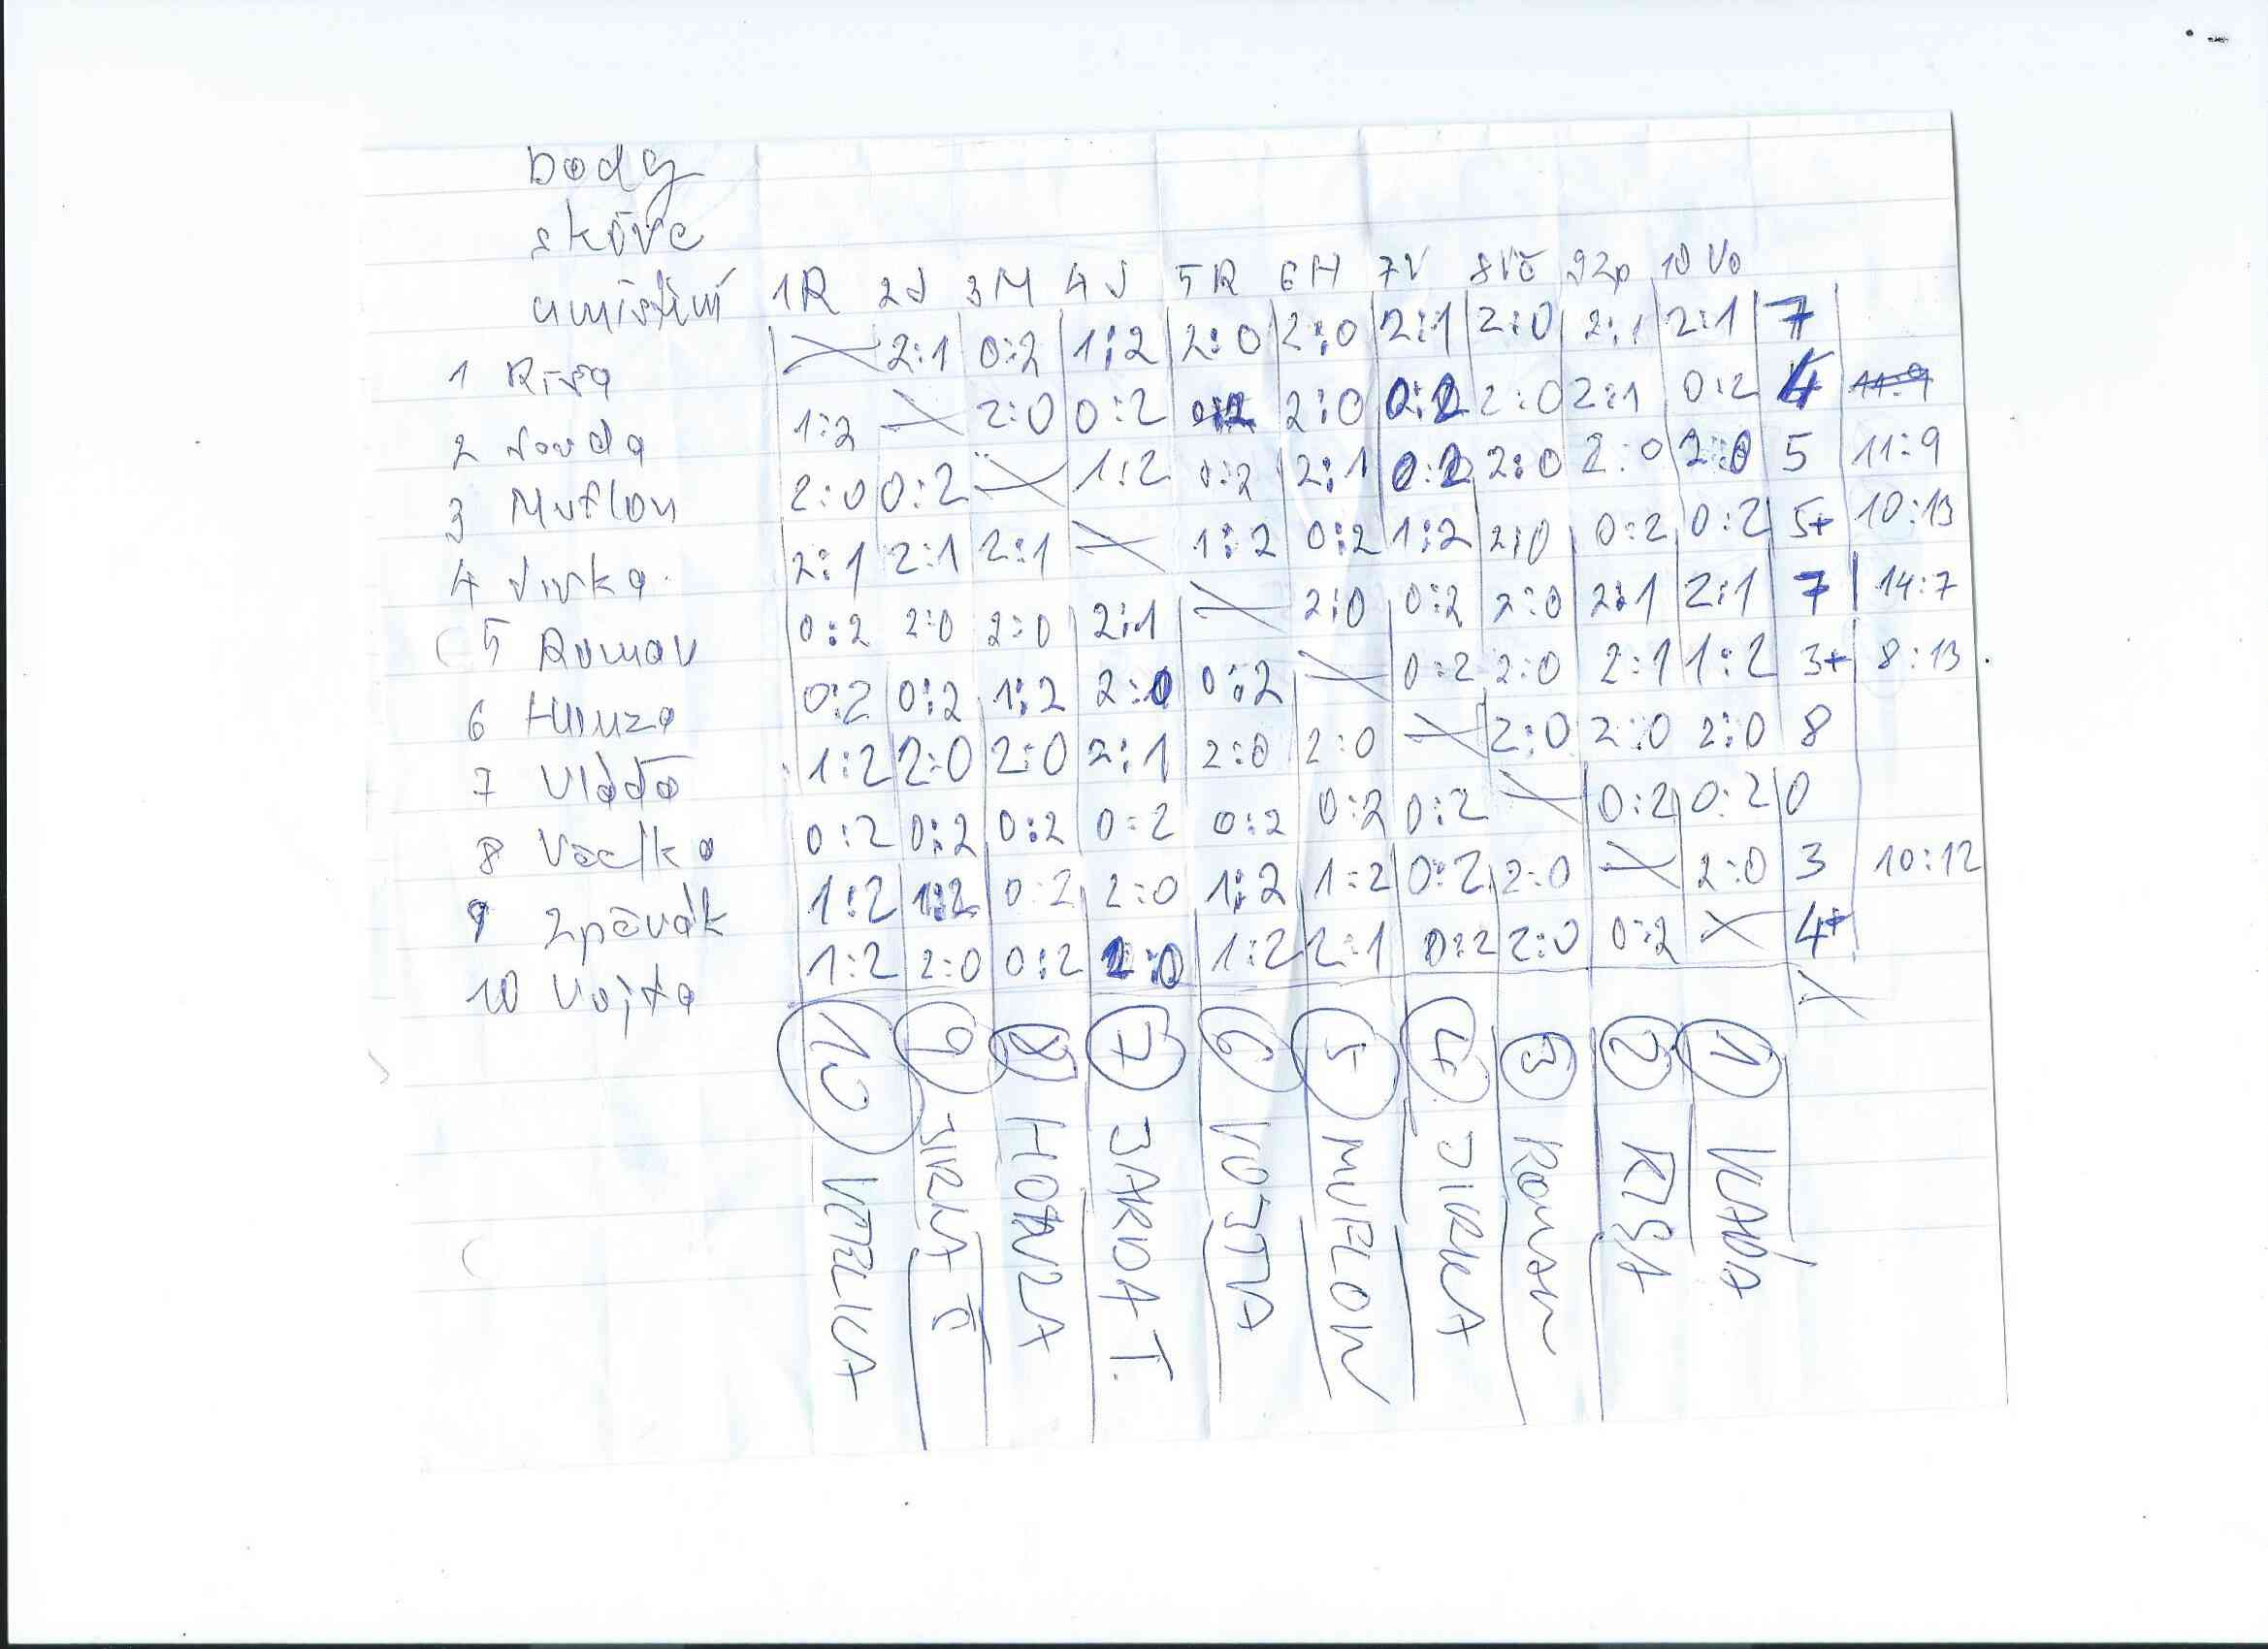 body
skóre
umístění 1R 2J 3M 4J 5R 6H 7V 8Vč 9Zp 10 Vo
1 Ríša X 2:1 0:2 1:2 2:0 2:0 2:1 2:0 2:1 2:1 7
2 1:2 X 2:0 0:2 0:2 2:0 0:2 2:0 2:1 0:2 4
3 Muflon 2:0 0:2 X 1:2 0:2 2:1 0:2 2:0 2:0 2:0 5 11:9
4 Jirka 2:1 2:1 2:1 X 1:2 0:2 1:2 2:0 0:2 0:2 5+ 10:13
5 Roman 0:2 2:0 2:0 2:1 X 2:0 0:2 2:0 2:1 2:1 7 14:7
6 Honza 0:2 0:2 1:2 2:0 0:2 X 0:2 2:0 2:1 1:2 3+ 8:13
7 Vláďa 1:2 2:0 2:0 2:1 2:0 2:0 X 2:0 2:0 2:0 8
8 0:2 0:2 0:2 0:2 0:2 0:2 0:2 X 0:2 0:2 0
9 Zpěvák 1:2 1:2 0:2 2:0 1:2 1:2 0:2 2:0 X 2:0 3 10:12
10 Vojta 1:2 2:0 0:2 2:0 1:2 2:1 0:2 2:0 0:2 X 4+
X
1 VLÁĎA
2 RÍŠA
3 ROMAN
4 JIRKA
5 MUFLON
6 VOJTA
7 T.
8 HONZA
9 II
10